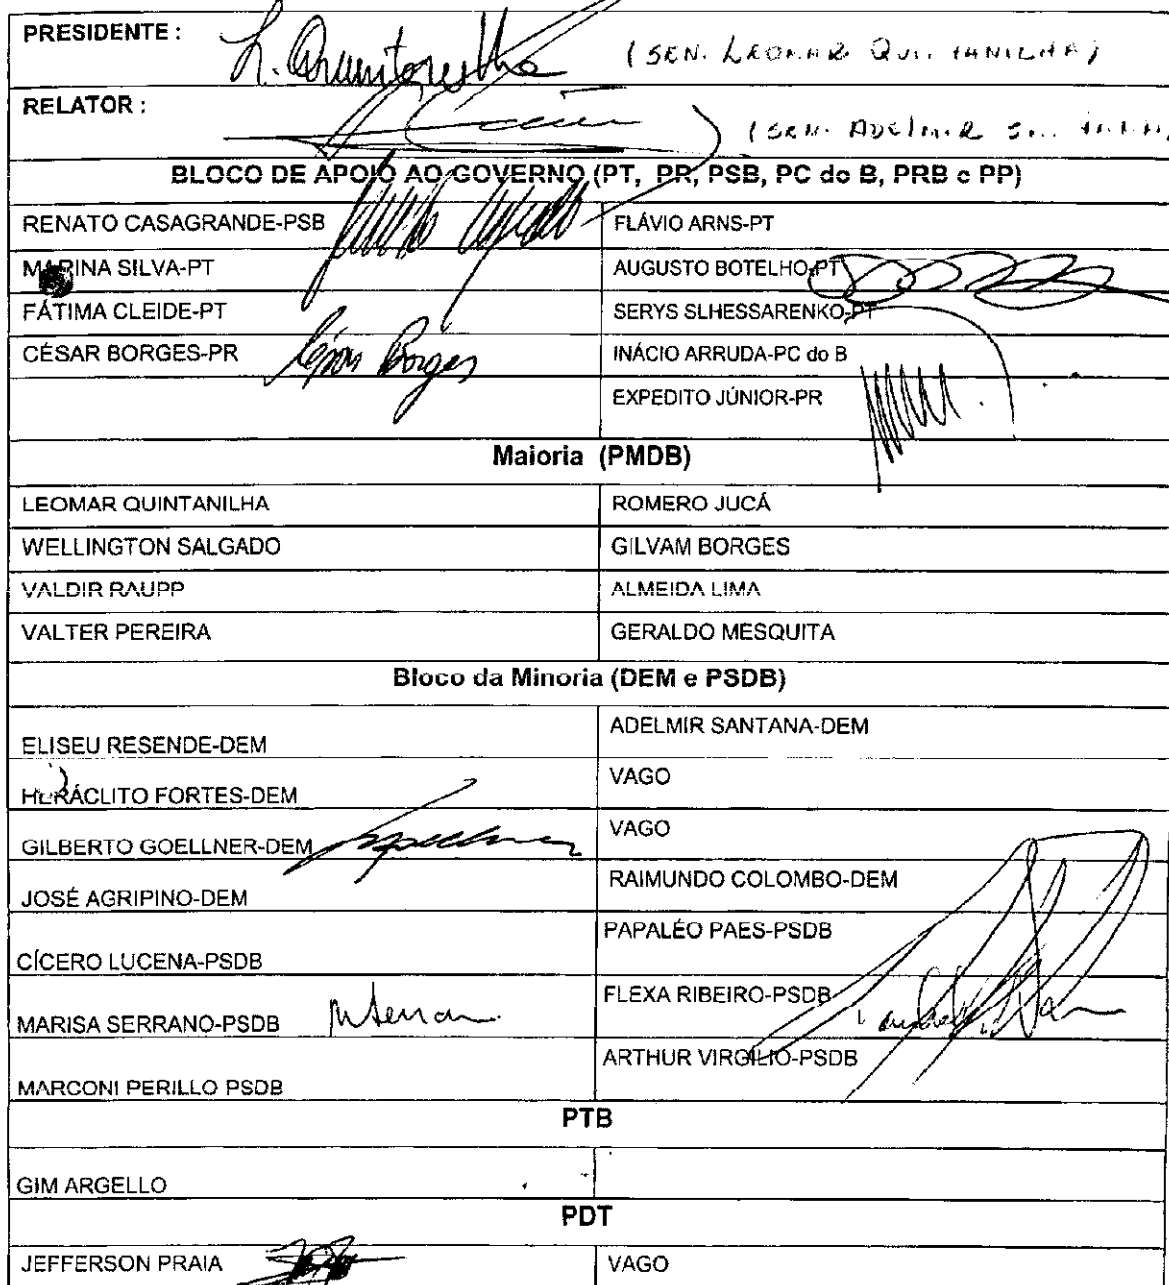 PRESIDENTE : L. Quintanilha (SEN. LEOMAR QUINTANILHA)
RELATOR : (SEN. ADELMIR
BLOCO DE APOIO AO GOVERNO (PT, PR, PSB, PC do B, PRB e PP)
RENATO CASAGRANDE-PSB FLÁVIO ARNS-PT
MARINA SILVA-PT AUGUSTO BOTELHO-PT
FÁTIMA CLEIDE-PT SERYS SLHESSARENKO-PT
CÉSAR BORGES-PR César Borges INÁCIO ARRUDA-PC do B
EXPEDITO JÚNIOR-PR
Maioria (PMDB)
LEOMAR QUINTANILHA ROMERO JUCÁ
WELLINGTON SALGADO GILVAM BORGES
VALDIR RAUPP ALMEIDA LIMA
VALTER PEREIRA GERALDO MESQUITA
Bloco da Minoria (DEM e PSDB)
ELISEU RESENDE-DEM ADELMIR SANTANA-DEM
HERÁCLITO FORTES-DEM VAGO
GILBERTO GOELLNER-DEM VAGO
JOSÉ AGRIPINO-DEM RAIMUNDO COLOMBO-DEM
CÍCERO LUCENA-PSDB PAPALÉO PAES-PSDB
MARISA SERRANO-PSDB FLEXA RIBEIRO-PSDB
MARCONI PERILLO PSDB ARTHUR VIRGÍLIO-PSDB
PTB
GIM ARGELLO
PDT
JEFFERSON PRAIA VAGO